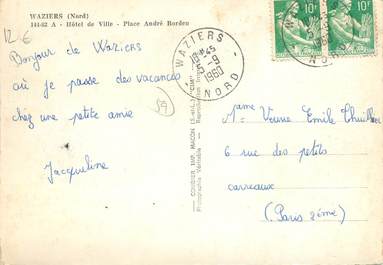 WAZIERS (Nord)
141-62 A - Hôtel de Ville - Place André Bordeu
12 €
Bonjour de Waziers
où je passe des vacances
chez une petite amie
Jacqueline
59
WAZIERS
10H45
5-9
1960
NORD
10F
10F
COMBIER IMP. MACON (S.-et-L.) "CIM"
Photographie Véritable - Reproduction
Mme Veuve Emile Thuillier
6 rue des petits
carreaux
(Paris 2ème)